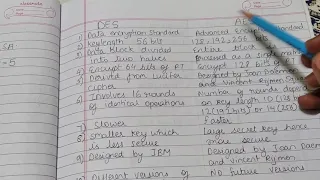 classmate
DES
1) Data encryption Standard Advanced Encryption Standard
2) Key length 56 bits 128, 192, 256 bits
3) Data block divided Entire block
into two halves Processed as a single
4) Encrypt 64 bits of PT Encrypt 128 bits of
5) Derived from Lucifer Designed by Joan Daemen
cipher and Vincent Rymen
6) Involves 16 rounds Number of rounds depend
of identical operations on Key length 10 (128)
12 (192 bits) or 14 (256)
7) Slower Faster
8) Smaller Key which Large secret key hence
is less secure more secure
9) Designed by IBM Designed by Joan Daemen
and Vincent Rymen
10) Different versions of No future versions